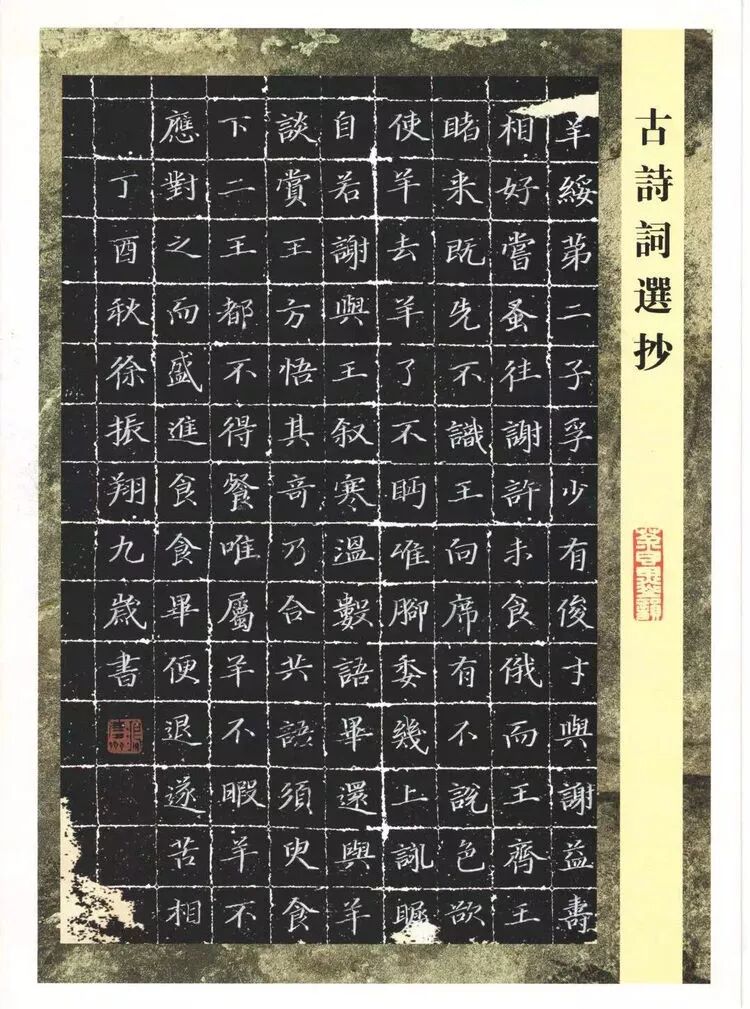 古詩詞選抄
羊綏第二子孚少有俊才與謝益壽
相好嘗蚤往謝許未食俄而王齊王
睹来既先不識王向席有不說色欲
使羊去羊了不眄唯腳委幾上詠矚
自若謝與王叙寒溫數語畢還與羊
談賞王方悟其奇乃合共語須臾食
下二王都不得餐唯屬羊不暇羊不
應對之而盛進食食畢便退遂苦相
丁酉秋徐振翔九歲書